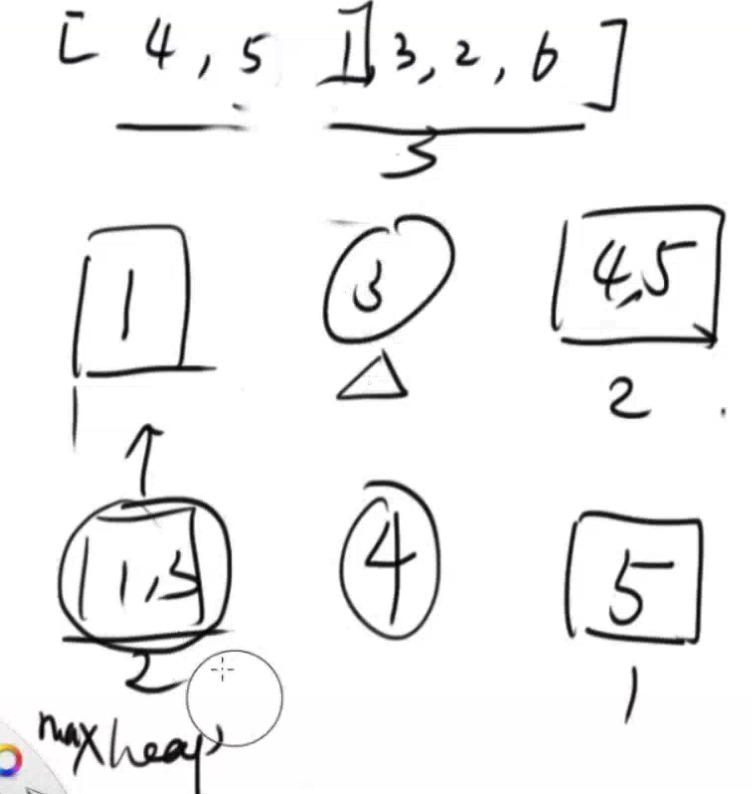 [ 4, 5 1] 3, 2, 6 ]
3
1 3 4,5
1 2
1,3 4 5
2 1
maxheap